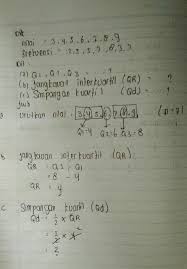 Dik
nilai = 3, 4, 5, 6, 7, 8, 9
Frekuensi = 2, 2, 5, 7, 8, 3, 3
Dit
(a) Q1, Q2, Q3 = ... ?
(b) Jangkauan interkuartil (QR) = ?
(c) Simpangan kuartil (Qd) = ... ?
Jwb
a Urutkan nilai = 3 4 5 6 7 8 9
Q1=4 Q2=6 Q3=8
b Jangkauan interkuartil (QR)
QR = Q3 - Q1
= 8 - 4
QR = 4
c Simpangan kuartil (Qd)
Qd = 1/2 x QR
= 1/2 x 4 2
= 2